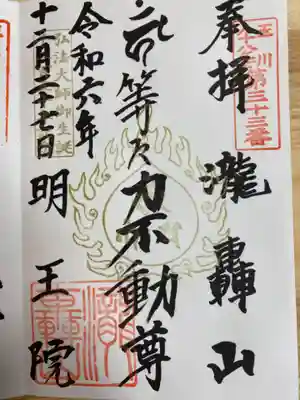 奉拝 瀧轟山
川第三十三番
等々力不動尊
令和六年
弘法大師御生誕
十二月二十七日 明王院